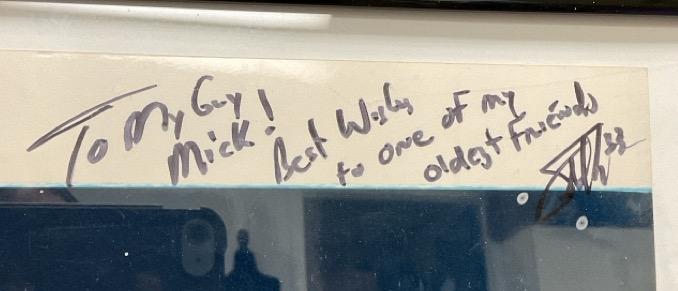 To My Guy
Mick!
Best Wishes
to one of my
oldest Friends
33